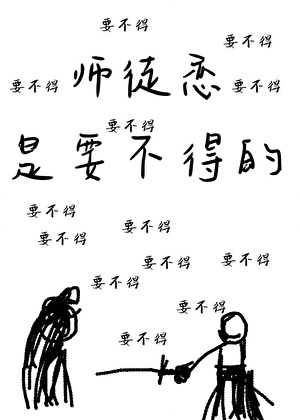 要不得
要不得
师徒恋
要不得
要不得
要不得
是要不得的
要不得
要不得
要不得
要不得
要不得
要不得
要不得
要不得